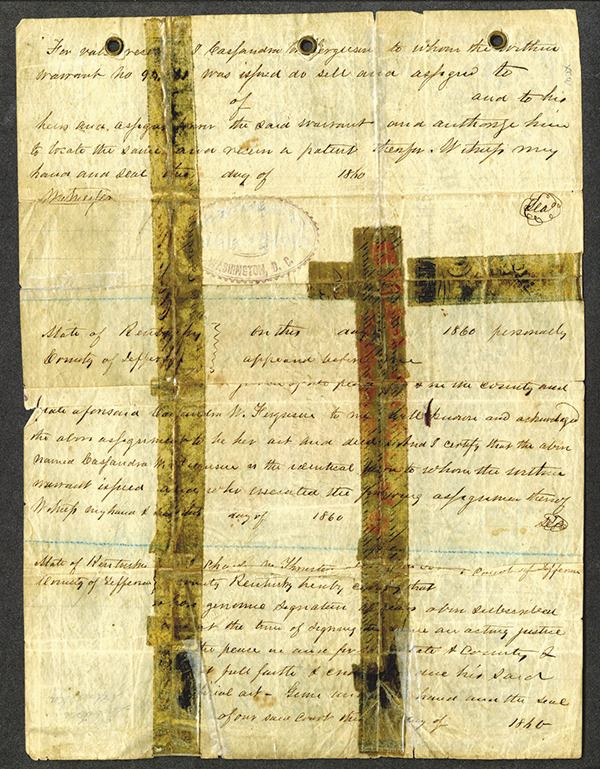 For val rece I Cassandra W. Ferguson to whom the within
warrant No 9 was issued do sell and assign to
of and to his
heirs and assigns the said warrant and authorize him
to locate the same and receive a patent therefor. Witness my
hand and seal this day of 1860
Witnesses Seal
WASHINGTON, D. C.
State of Kentucky On this day 1860 personally
County of Jefferson appeared before me
peace & in the County and
State aforesaid Cassandra W. Ferguson to me well known and acknowledged
the above assignment to be her act and deed And I certify that the above
named Cassandra W. Ferguson is the identical to whom the within
warrant issued and who executed the foregoing assignment thereof
Witness my hand & seal day of 1860 Seal
State of Kentucky Court of Jefferson
County of Jefferson County Kentucky hereby certify that
genuine signature above subscribed
at the time of signing the same an acting justice
the peace in and for State & County &
full faith & his said
official act - Given hand and the seal
of our said Court this day of 1860